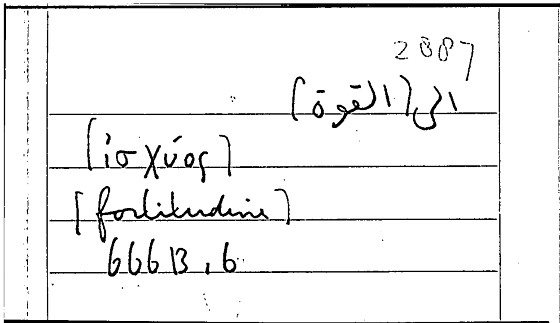 2087
الى [القوة]
[ἰσχύος]
[fortitudine]
666B,6